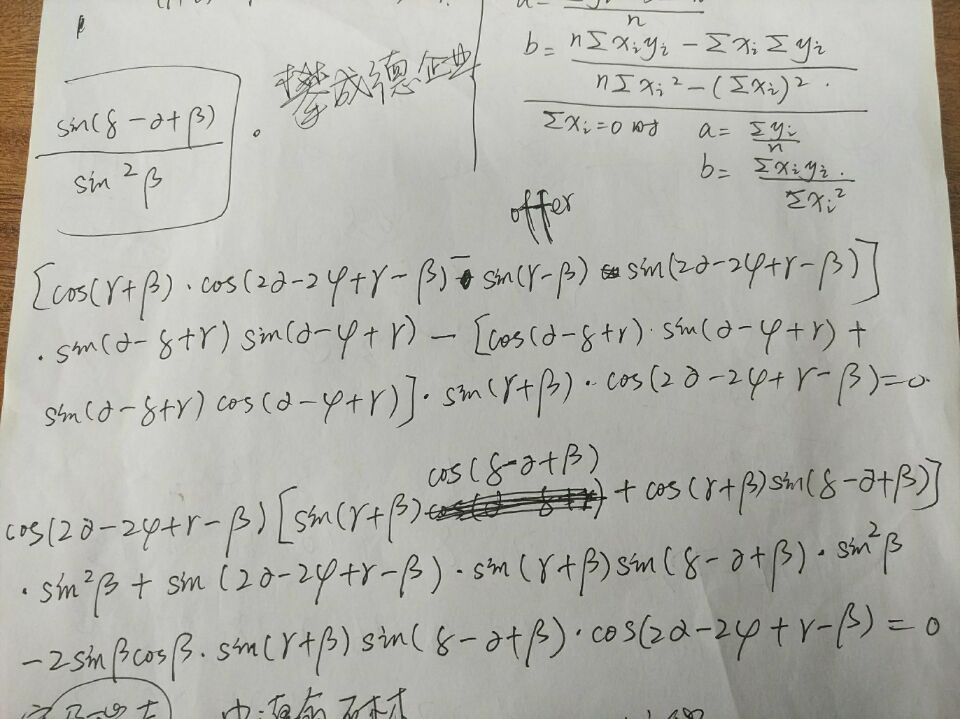 sin(δ-∂+β)
sin²β
。攀成德企业
n
b= nΣxᵢyᵢ - Σxᵢ Σyᵢ
nΣxᵢ² - (Σxᵢ)²
Σxᵢ=0 时 a= Σyᵢ
n
b= Σxᵢyᵢ
Σxᵢ²
offer
[cos(γ+β)·cos(2∂-2φ+γ-β) - sin(γ-β) sin(2∂-2φ+γ-β)]
·sin(∂-δ+γ) sin(∂-φ+γ) - [cos(∂-δ+γ)·sin(∂-φ+γ) +
sin(∂-δ+γ) cos(∂-φ+γ)]·sin(γ+β)·cos(2∂-2φ+γ-β)=0
cos(δ-∂+β)
cos(2∂-2φ+γ-β)[sin(γ+β) + cos(γ+β)sin(δ-∂+β)]
·sin²β + sin(2∂-2φ+γ-β)·sin(γ+β)sin(δ-∂+β)·sin²β
-2sinβcosβ·sin(γ+β)sin(δ-∂+β)·cos(2∂-2φ+γ-β)=0